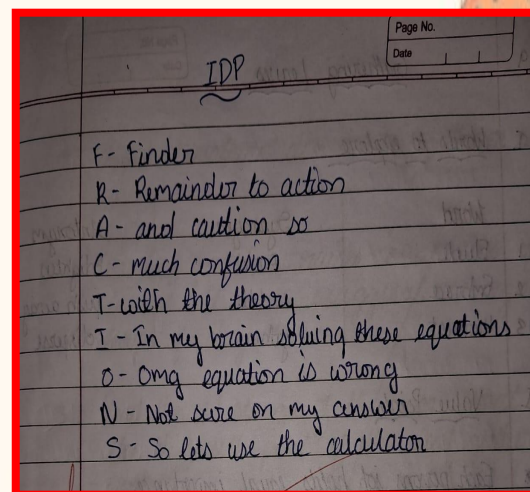 Page No.
Date
IDP
F - Finder
R - Remainder to action
A - and caution so
C - much confusion
T - with the theory
I - In my brain solving these equations
O - Omg equation is wrong
N - Not sure on my answer
S - So lets use the calculator